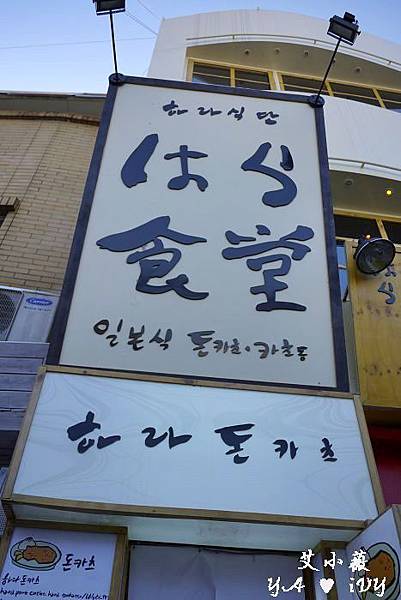 하라식단
はら
食堂
일본식 돈카츠·카츠동
하라돈카츠
Carrier
돈카츠
하라돈카츠
艾小薇
YA ♥ iVY